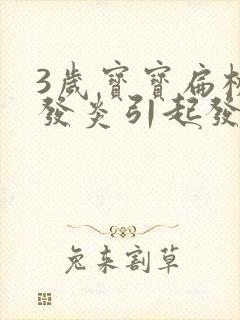 3歲寶寶扁桃
發炎引起發
兔来割草